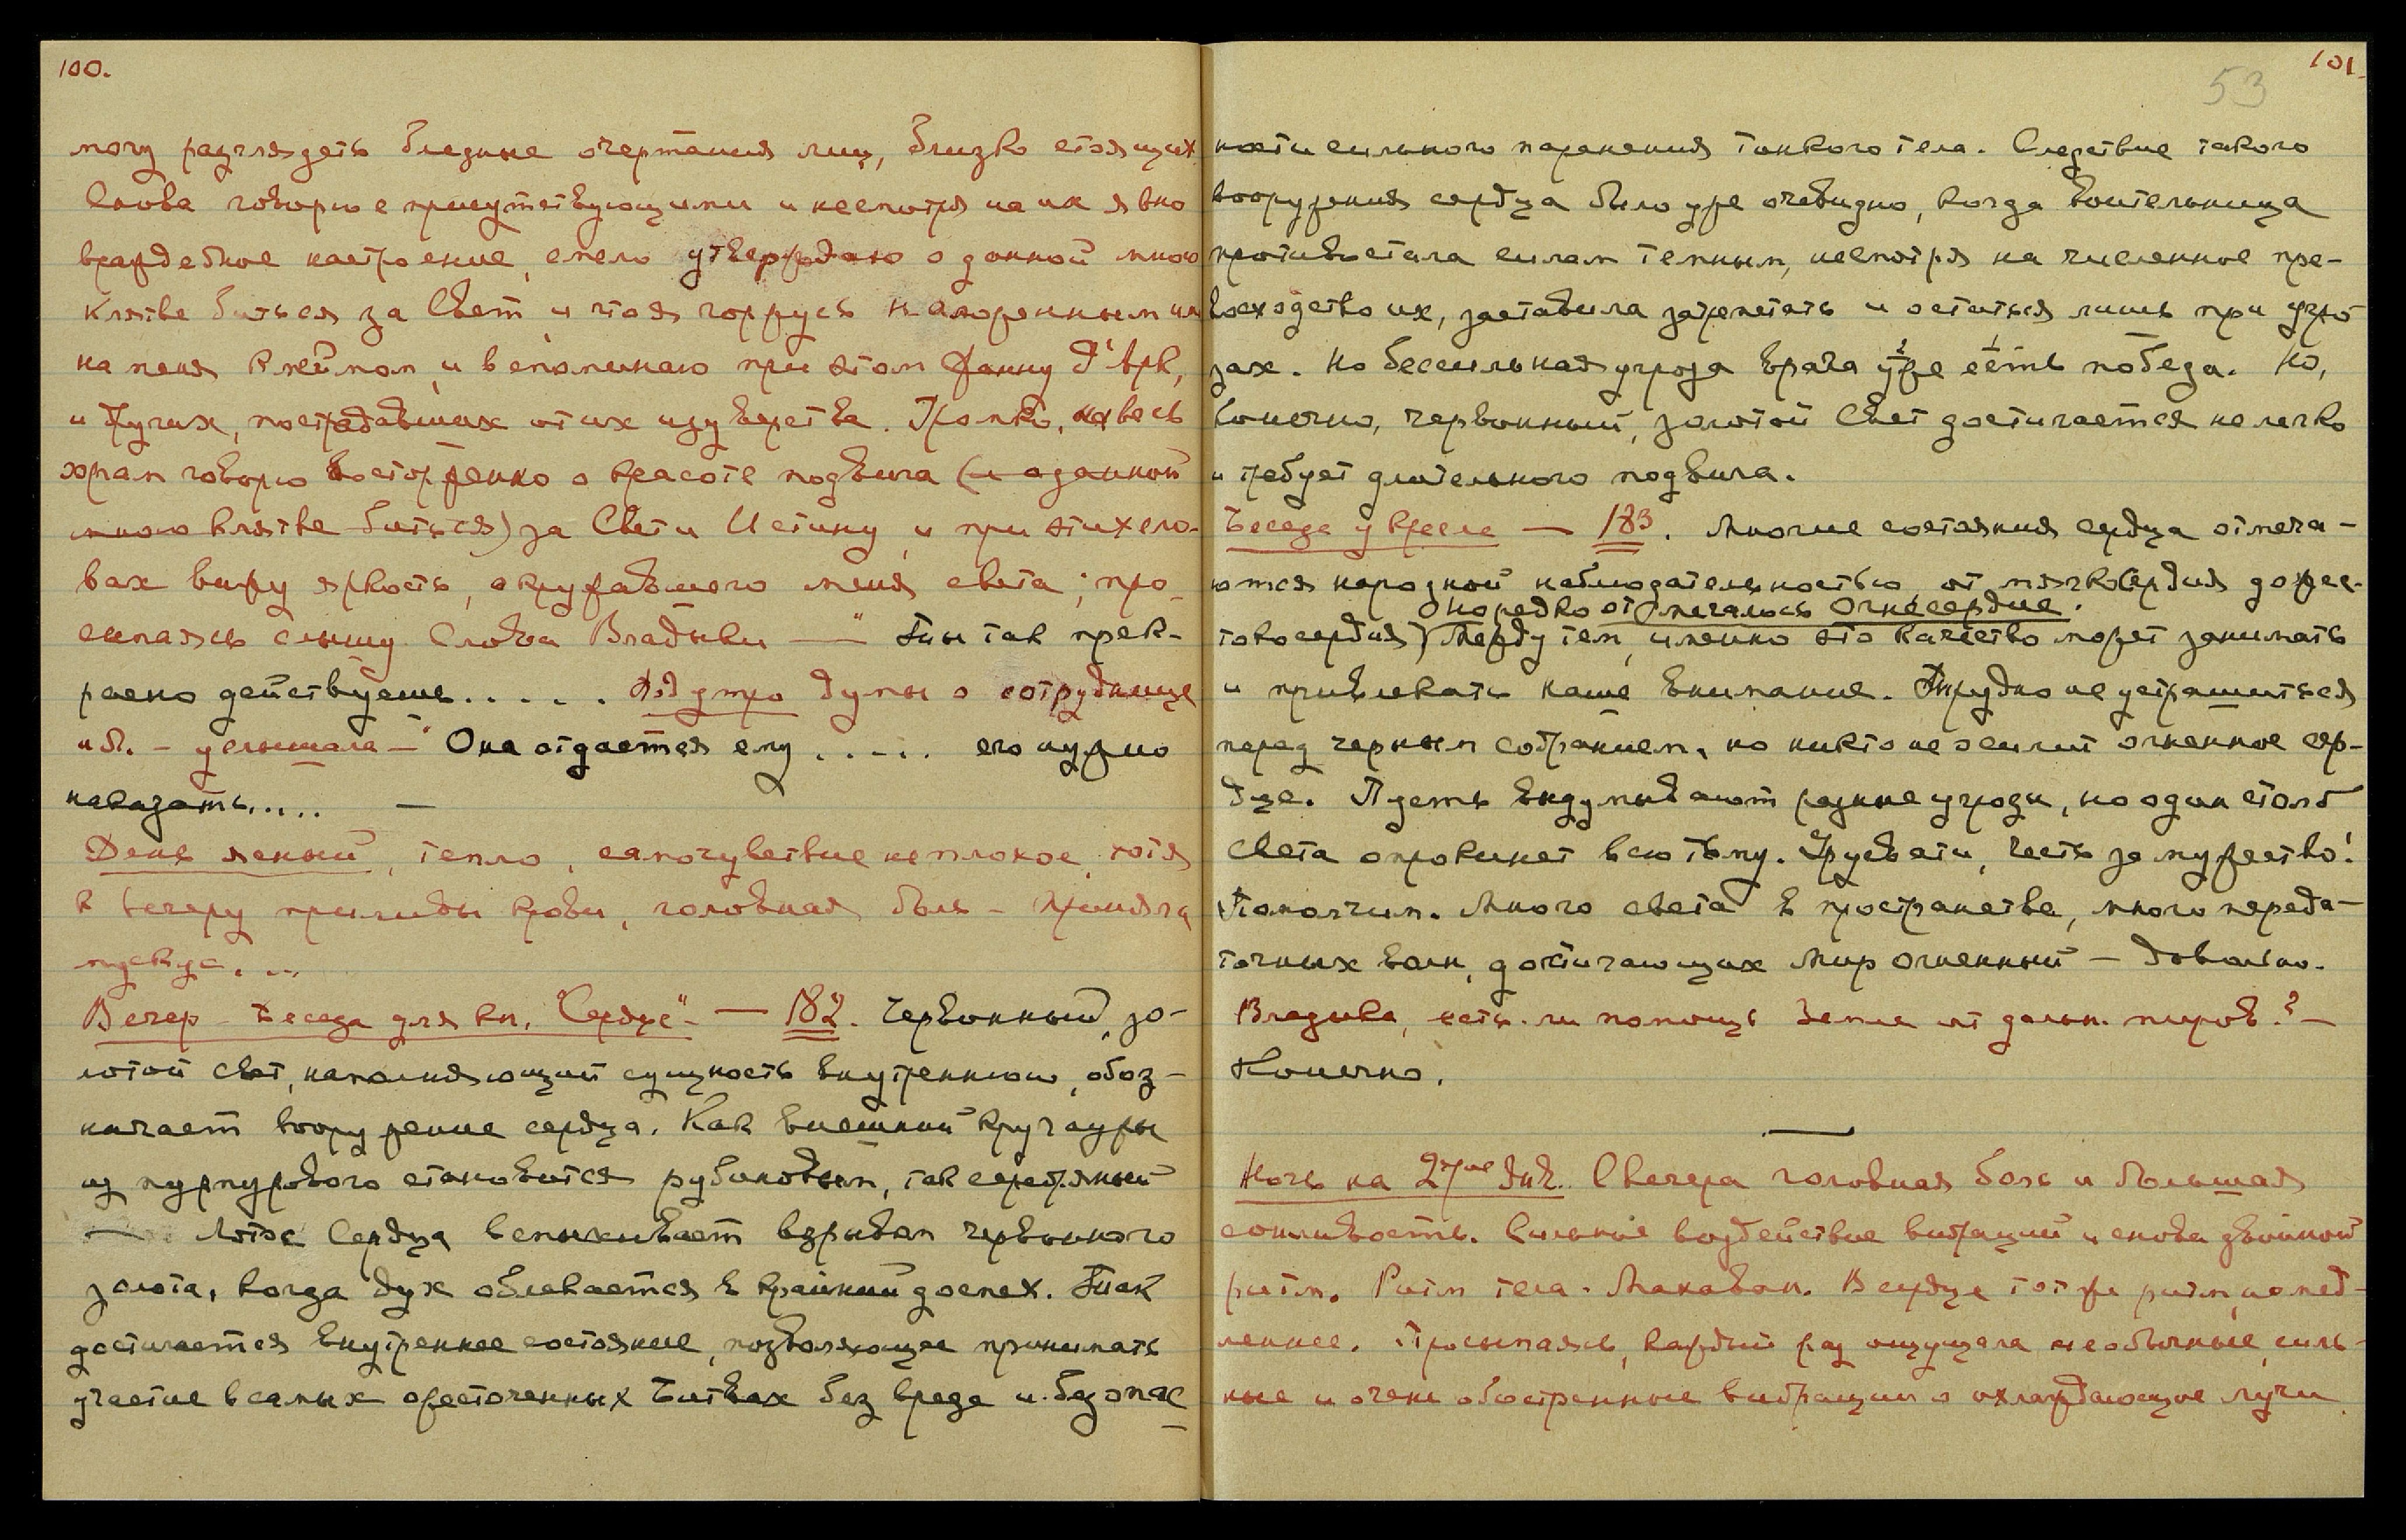 100.
могу разглядеть бледные очертания лиц, близко стоящих.
Снова говорю с присутствующими и несмотря на их явно
враждебное настроение, смело утверждаю о данной мною
клятве биться за Свет и что я горжусь наложенным ими
на меня клеймом, и вспоминаю при этом Жанну д'Арк,
и других, пострадавших от их изуверства. Громко, на весь
храм говорю восторженно о красоте подвига (и о данной
мною клятве биться) за Свет и Истину, и при этих сло-
вах вижу яркость, окружавшего меня света; про-
сыпаясь слышу Слова Владыки — " Ты так прек-
расно действуешь . . . . . Под утро думы о сотруднице
и Л. – услышала – " Она отдается ему . . . . . его нужно
наказать..... —
День ясный, тепло, самочувствие неплохое, хотя
к вечеру приливы крови, головная боль – приняла
мускус. . .
Вечер – Беседа для кн. "Сердце" – — 182. Червонный, зо-
лотой свет, наполняющий сущность внутреннюю, обоз-
начает вооружение сердца. Как внешний круг ауры
из пурпурового становится рубиновым, так серебряный
— Лотос Сердца вспыхивает взрывом червонного
золота, когда дух облекается в крайний доспех. Так
достигается внутреннее состояние, позволяющее принимать
участие в самых ожесточенных Битвах без вреда и безопас
101.
53
ности сильного паранения тонкого тела. Следствие такого
вооружения сердца было уже очевидно, когда воительница
противостала силам темным, несмотря на численное пре-
восходство их, заставила затрепетать и остаться лишь при угро-
зах. Но бессильная угроза врага уже есть победа. Но,
конечно, червонный, золотой Свет достигается нелегко
и требует длительного подвига.
Беседа у кресла — 183. Многие состояния сердца отмеча-
ются народной наблюдательностью, от мягкосердия до жес-
но редко отмечалось Огнесердие.
токосердия, Между тем, именно это качество может занимать
и привлекать наше внимание. Трудно не устрашиться
перед черным собранием, но никто не осилит огненное сер-
дце. Пусть выдумывают разные угрозы, но один столб
света опрокинет всю тьму. Урусвати, честь за мужество!
Помолчим. Много света в пространстве, много переда-
точных волн, достигающих Мир огненный – довольно.
Владыка, есть-ли помощь Земле от дальн. миров? –
Конечно.
Ночь на 27ое Янв. С вечера головная боль и большая
сонливость. Сильное воздействие вибраций и снова двойной
ритм. Ритм тела – Макаван. В сердце тот же ритм, но мед-
леннее. Просыпаясь, каждый раз ощущала необычные, силь-
ные и очень обостренные вибрации и охлаждающие лучи